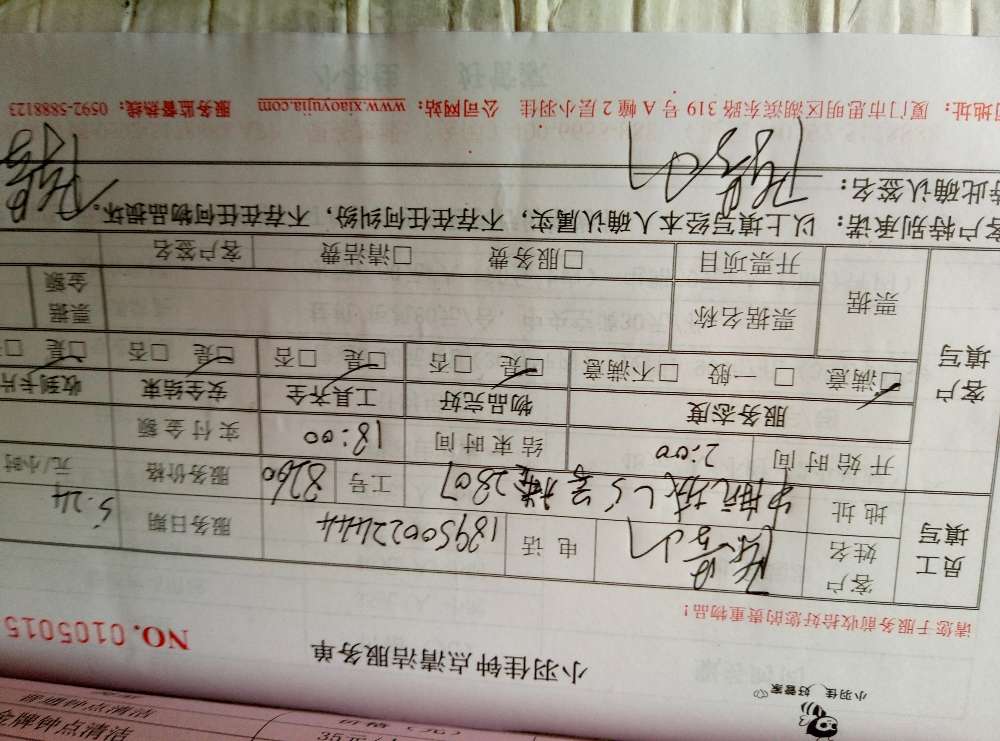 小羽佳 好管家
小羽佳钟点清洁服务单
NO. 0105015
请您于服务前收拾好您的贵重物品!
员工填写
客户姓名
电话 18950022444
服务日期 5.24
地址
2807
工号 8260
服务价格 元/小时
开始时间 2:00
结束时间 18:00
实付金额
客户填写
服务态度
物品完好
工具齐全
安全结束
收到卡片
☑满意 □一般 □不满意
☑是 □否
☑是 □否
☑是 □否
☑是
票据
票据名称
票据金额
开票项目
□服务费 □清洁费
客户签名
客户特别承诺:以上填写经本人确认属实,不存在任何纠纷,不存在任何物品损坏。
特此确认签名:
司地址:厦门市思明区湖滨东路 319 号 A 幢 2 层小羽佳 公司网站:www.xiaoyujia.com 服务监督热线:0592-5888123